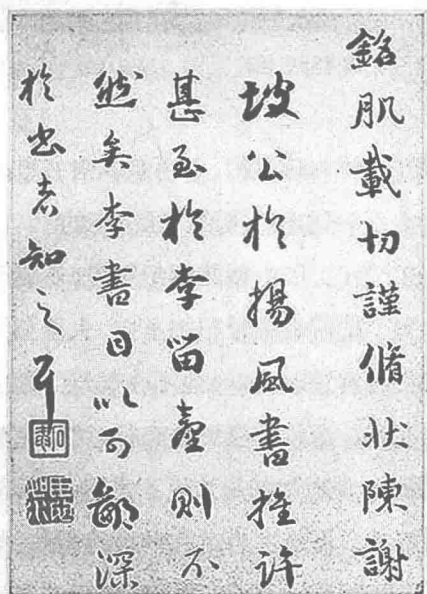 銘肌載切謹脩狀陳謝
坡公於揚風書推許
甚至於李留臺則不
然矣李書目以可鄙深
於書者知之耳